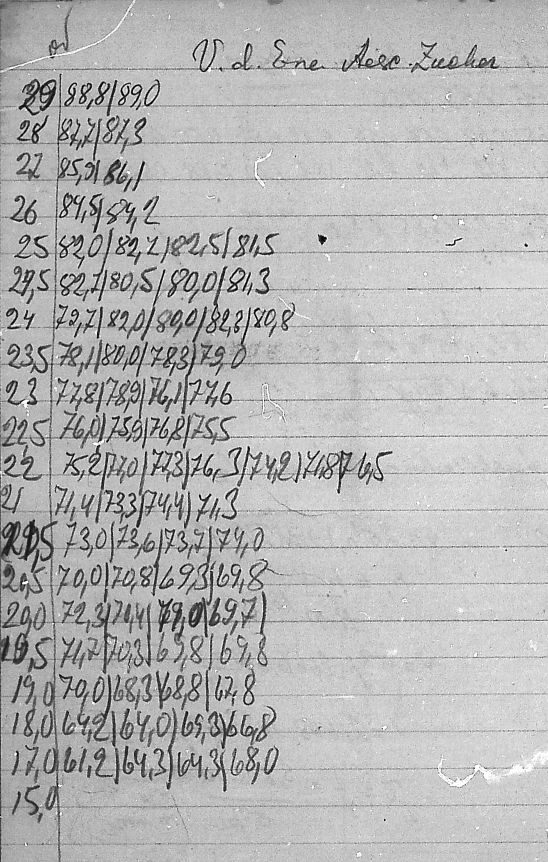 V. d. Ene Aesc. Zucker
29 | 88,8 | 89,0
28 | 87,7 | 87,3
27 | 85,9 | 86,1
26 | 84,5 | 84,2
25 | 82,0 | 82,2 | 82,5 | 81,5
24,5 | 82,7 | 80,5 | 80,0 | 81,3
24 | 79,7 | 82,0 | 80,0 | 82,3 | 80,8
23,5 | 78,1 | 80,0 | 78,3 | 79,0
23 | 77,8 | 78,9 | 76,1 | 77,6
22,5 | 76,0 | 75,9 | 76,8 | 75,5
22 | 75,2 | 77,0 | 77,3 | 76,3 | 74,2 | 71,8 | 76,5
21 | 71,4 | 73,3 | 74,4 | 71,3
21,5 | 73,0 | 73,6 | 73,7 | 74,0
20,5 | 70,0 | 70,8 | 69,3 | 69,8
20,0 | 72,3 | 71,4 | 79,0 | 69,7 |
19,5 | 71,7 | 70,3 | 69,8 | 69,8
19,0 | 70,0 | 68,3 | 68,8 | 67,8
18,0 | 64,2 | 64,0 | 69,3 | 66,8
17,0 | 61,2 | 64,3 | 64,3 | 68,0
15,0